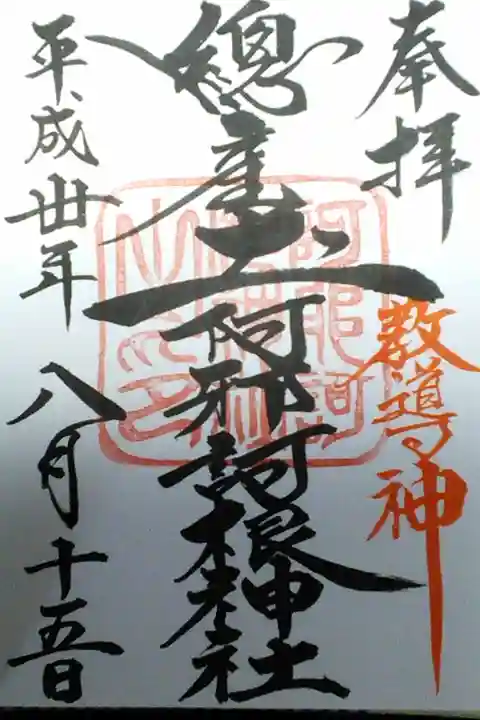 奉拝
教導神
總産土
阿邪訶根神社
平成卅年八月十五日